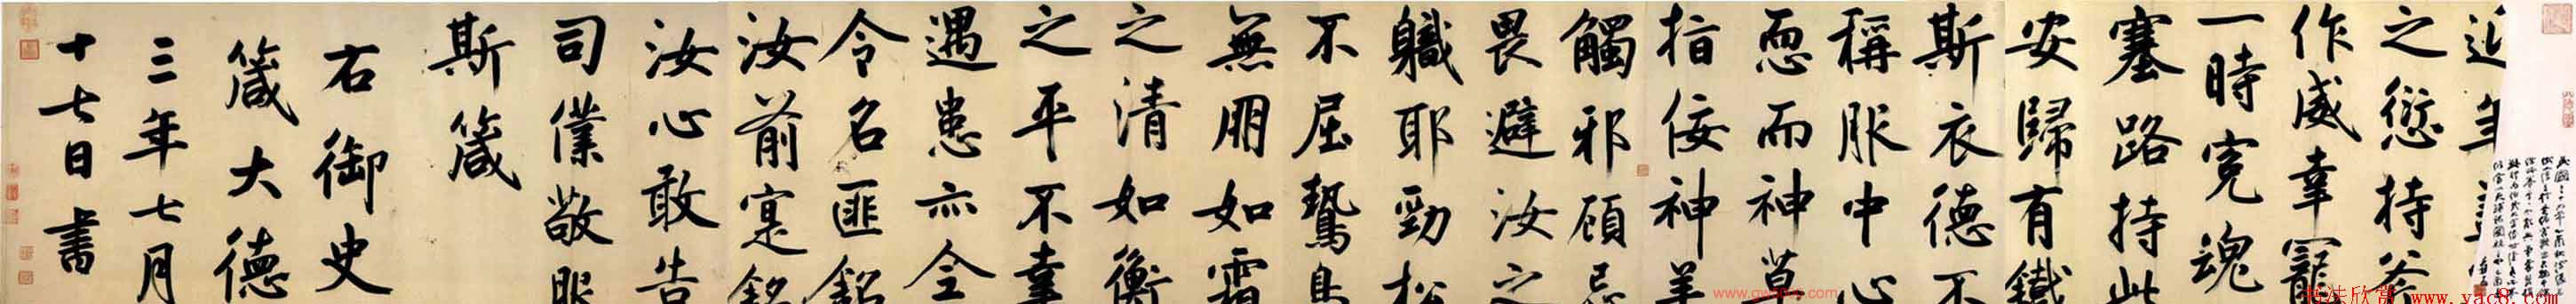 近年
之愆持斧
作威幸寵
一時冤魂
塞路持此
安歸有鐵
斯衣德不
稱服中心
恧而神草
指佞神羊
觸邪顧忌
畏避汝之
軄耶勁松
不屈鷙鳥
無朋如霜
之清如衡
之平不幸
遇患亦全
令名匪銘
汝前寔銘
汝心敢告
司僕敬
斯箴
右御史
箴大德
三年七月
十七日書
书法欣赏 www.yac8.com